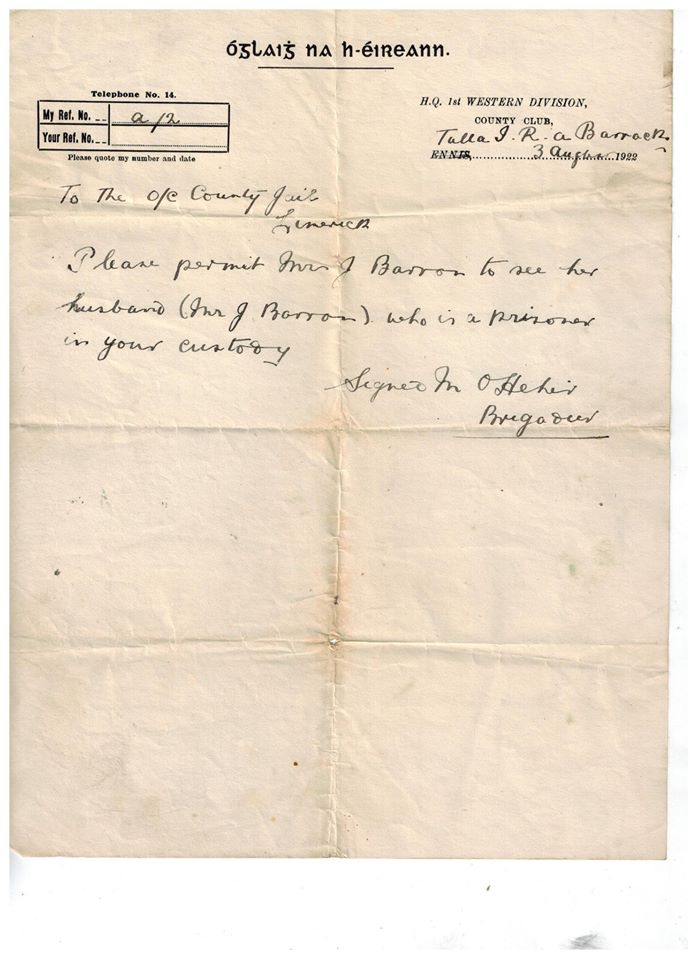 óglaiġ na h-éireann.
Telephone No. 14.
My Ref. No. a/2
Your Ref. No.
Please quote my number and date
H.Q. 1st WESTERN DIVISION,
COUNTY CLUB,
Tulla I. R. A Barracks
ENNIS, 3 Augst 1922
To The O/C County Jail
Limerick
Please permit Mrs J Barron to see her
husband (Mr J Barron) who is a prisoner
in your custody
Signed M O'Hehir
Brigadier